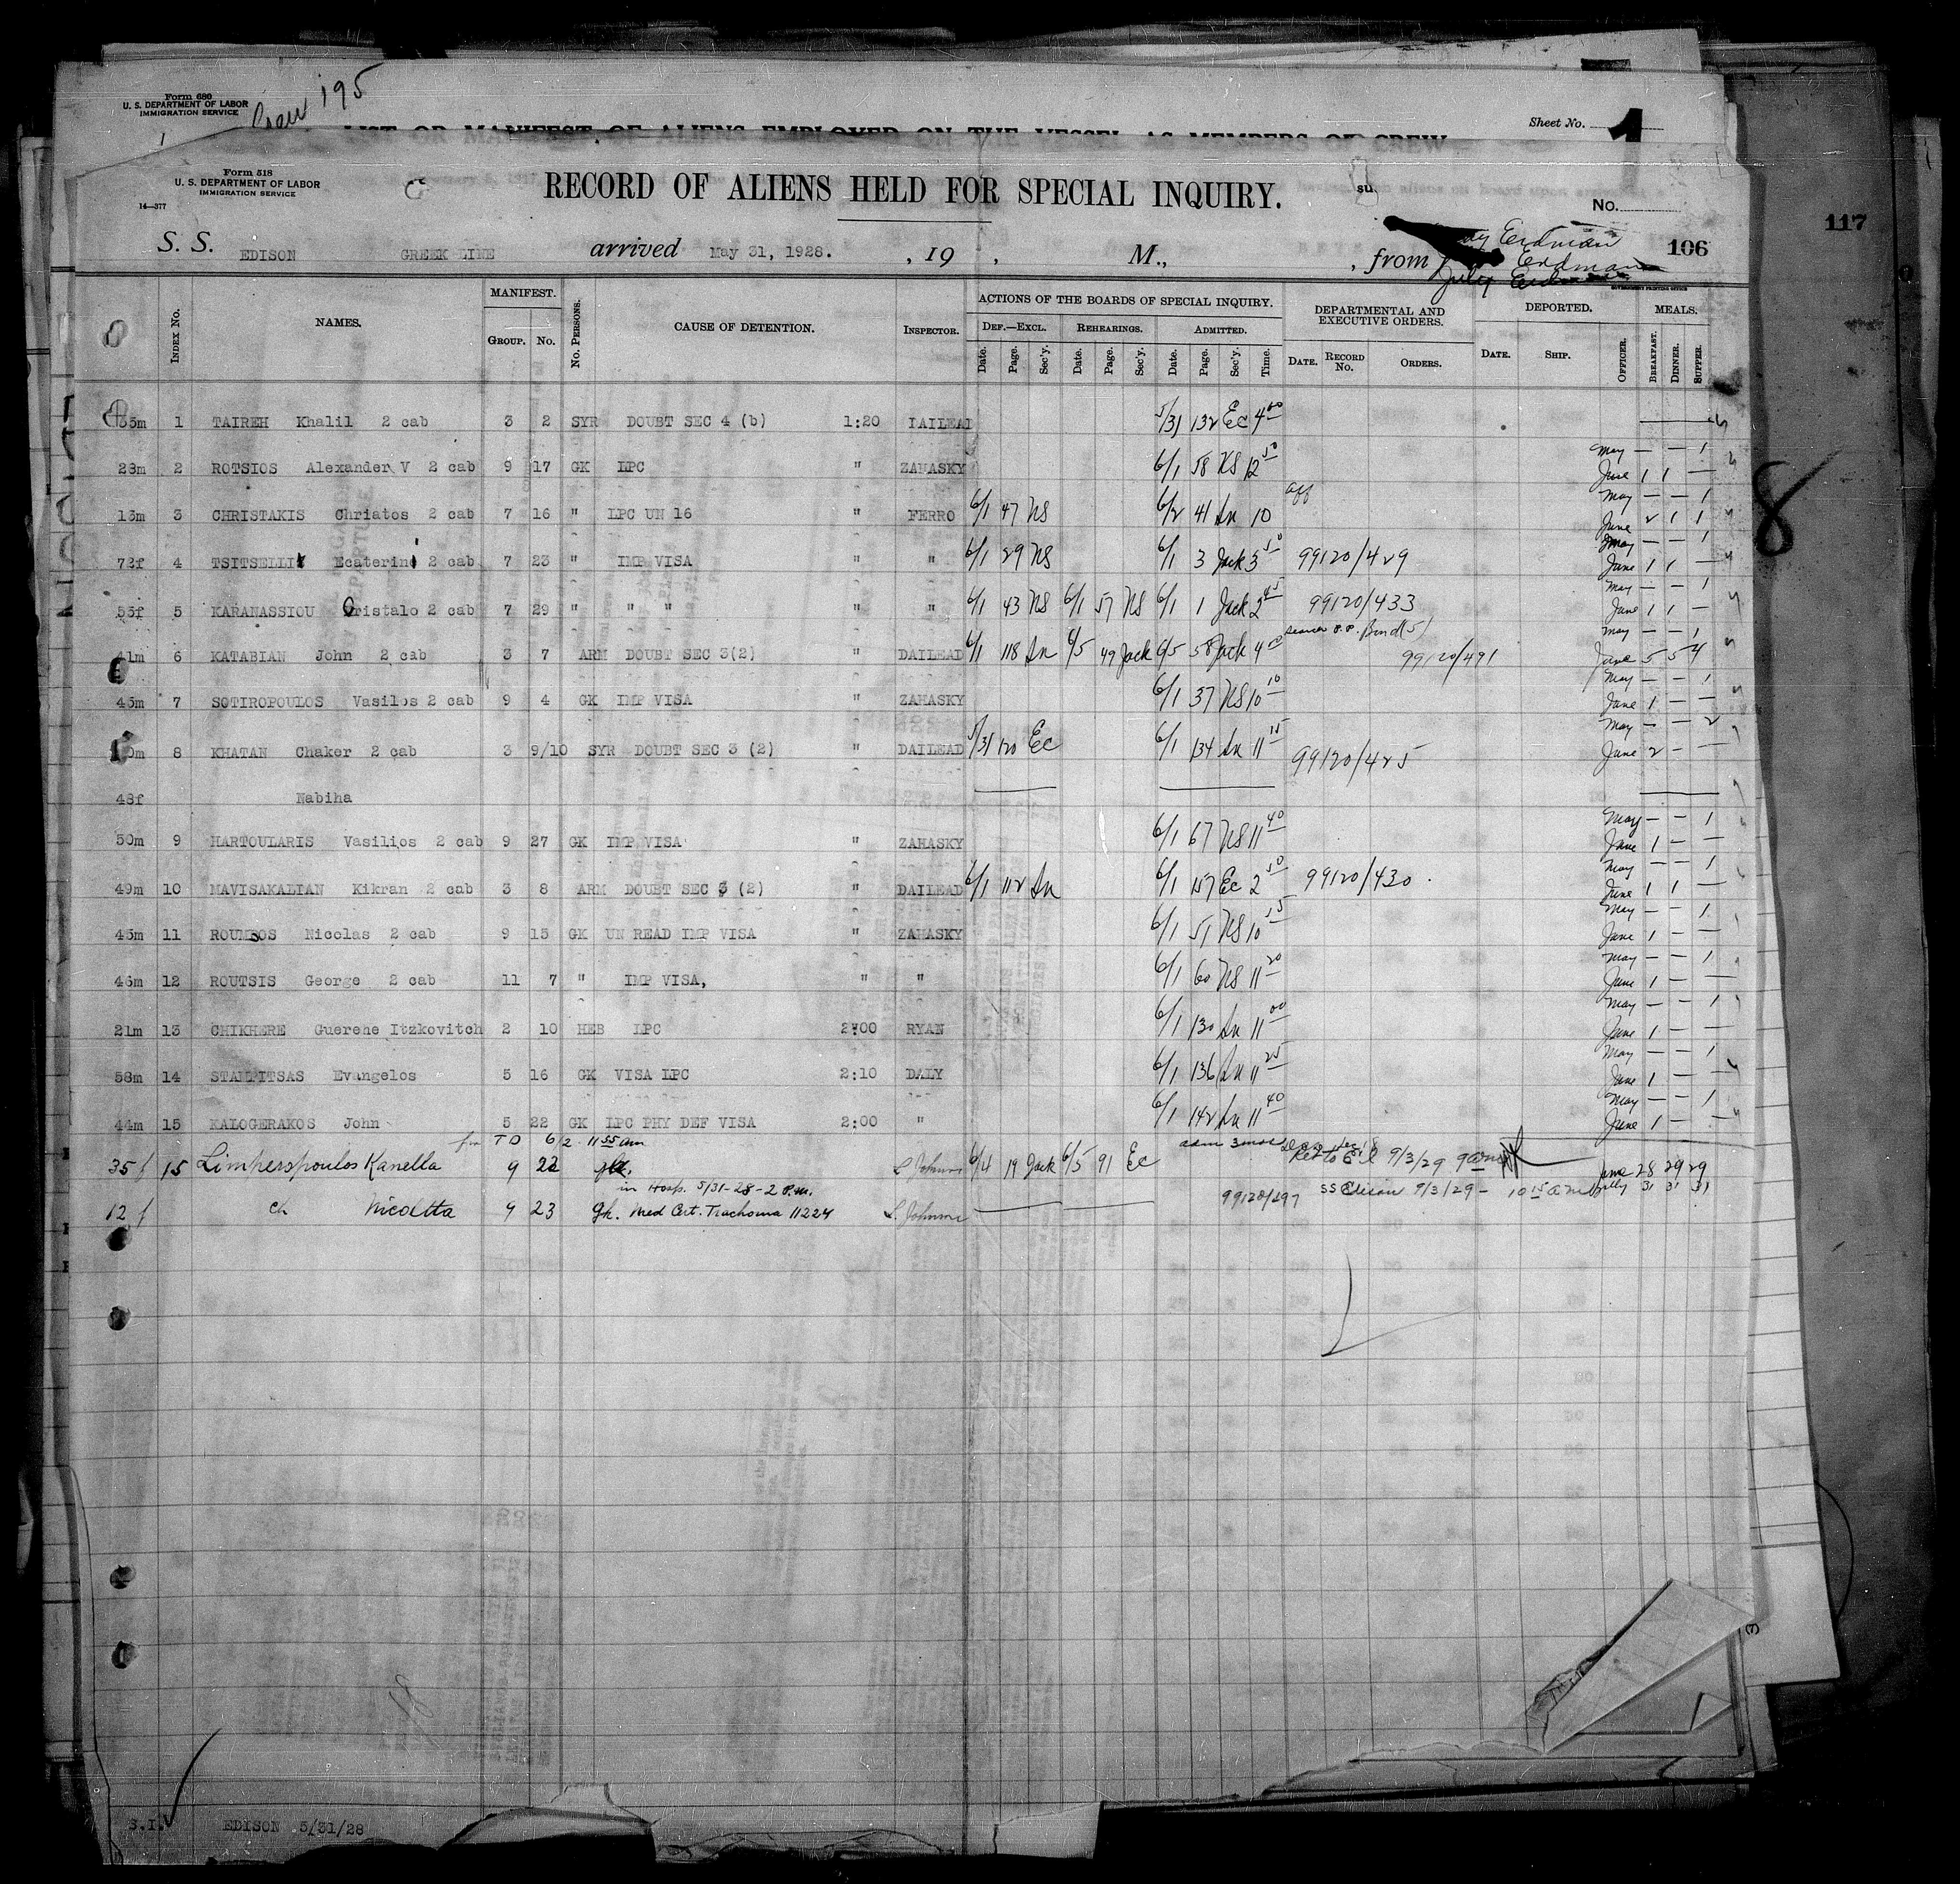 Form 680
U. S. DEPARTMENT OF LABOR
IMMIGRATION SERVICE
Crew 195
LIST OR MANIFEST OF ALIENS EMPLOYED ON THE VESSEL AS MEMBERS OF CREW
Sheet No. 1
Form 518
U. S. DEPARTMENT OF LABOR
IMMIGRATION SERVICE
14—377
RECORD OF ALIENS HELD FOR SPECIAL INQUIRY.
su
No.
117
S. S. EDISON GREEK LINE arrived May 31, 1928. , 19 , M., , from
Erdman
Erdman
106
INDEX No. NAMES. MANIFEST. GROUP. No. No. PERSONS. CAUSE OF DETENTION. INSPECTOR. ACTIONS OF THE BOARDS OF SPECIAL INQUIRY. DEPARTMENTAL AND EXECUTIVE ORDERS. DEPORTED. MEALS.
DEF.—EXCL. REHEARINGS. ADMITTED.
Date. Page. Sec'y. Date. Page. Sec'y. Date. Page. Sec'y. Time. DATE. RECORD No. ORDERS. DATE. SHIP. OFFICER. BREAKFAST. DINNER. SUPPER.
35m 1 TAIREH Khalil 2 cab 3 2 SYR DOUBT SEC 4 (b) 1:20 DAILEAD 5/31 132 Ec 4 00
28m 2 ROTSIOS Alexander V 2 cab 9 17 GK LPC " ZAHASKY 6/1 58 NS 12 50 May — — 1 June 1 1 —
13m 3 CHRISTAKIS Christos 2 cab 7 16 " LPC UN 16 " FERRO 6/1 47 NS 6/2 41 Sn 10 aff May — — 1 June 2 1 1
72f 4 TSITSELLI Ecaterini 2 cab 7 23 " IMP VISA " " 6/1 29 NS 6/1 3 Jack 3 50 99120/429 May — — 1 June 1 1 —
53f 5 KARANASSIOU Cristalo 2 cab 7 29 " " " " " 6/1 43 NS 6/1 57 NS 6/1 1 Jack 2 45 99120/433 May — — 1 June 1 1 —
41m 6 KATABIAN John 2 cab 3 7 ARM DOUBT SEC 3(2) " DAILEAD 6/1 118 Sn 6/5 49 Jack 6/5 58 Jack 4 00 99120/491 May — — 1 June 5 5 4
45m 7 SOTIROPOULOS Vasilos 2 cab 9 4 GK IMP VISA " ZAHASKY 6/1 37 NS 10 10 May — — 1 June 1 — —
8 KHATAN Chaker 2 cab 3 9/10 SYR DOUBT SEC 3 (2) " DAILEAD 5/31 120 Ec 6/1 134 Sn 11 15 99120/425 May — — 2 June 2 — —
48f Nabiha
50m 9 HARTOULARIS Vasilios 2 cab 9 27 GK IMP VISA " ZAHASKY 6/1 67 NS 11 40 May — — 1 June 1 — —
49m 10 MAVISAKALIAN Kikran 2 cab 3 8 ARM DOUBT SEC 3 (2) " DAILEAD 6/1 112 Sn 6/1 157 Ec 2 50 99120/430 May — — 1 June 1 1 —
45m 11 ROUMBOS Nicolas 2 cab 9 15 GK UN READ IMP VISA " ZAHASKY 6/1 51 NS 10 55 May — — 1 June 1 — —
46m 12 ROUTSIS George 2 cab 11 7 " IMP VISA, " " 6/1 60 NS 11 20 May — — 1 June 1 — —
21m 13 CHIKHERE Guerehe Itzkovitch 2 10 HEB LPC 2:00 RYAN 6/1 130 Sn 11 00 May — — 1 June 1 — —
58m 14 STAMPITSAS Evangelos 5 16 GK VISA LPC 2:10 DALY 6/1 136 Sn 11 25 May — — 1 June 1 — —
44m 15 KALOGERAKOS John 5 22 GK LPC PHY DEF VISA 2:00 " 6/1 142 Sn 11 40 May — — 1 June 1 — —
fm T D 6/2 11 55 am
35 f 15 Limberopoulos Kanella 9 22 gk. L Johnson 6/4 19 Jack 6/5 91 Ec adm 3 mos 9/3/29 June 28 29 29
in Hosp. 5/31-28-2 P.m. 99120/497 SS Edison 9/3/29 - 10 15 am July 31 31 31
12 f ch Nicoletta 9 23 gk. Med Cert. Trachoma 11224 L Johnson
8
S.I. EDISON 5/31/28